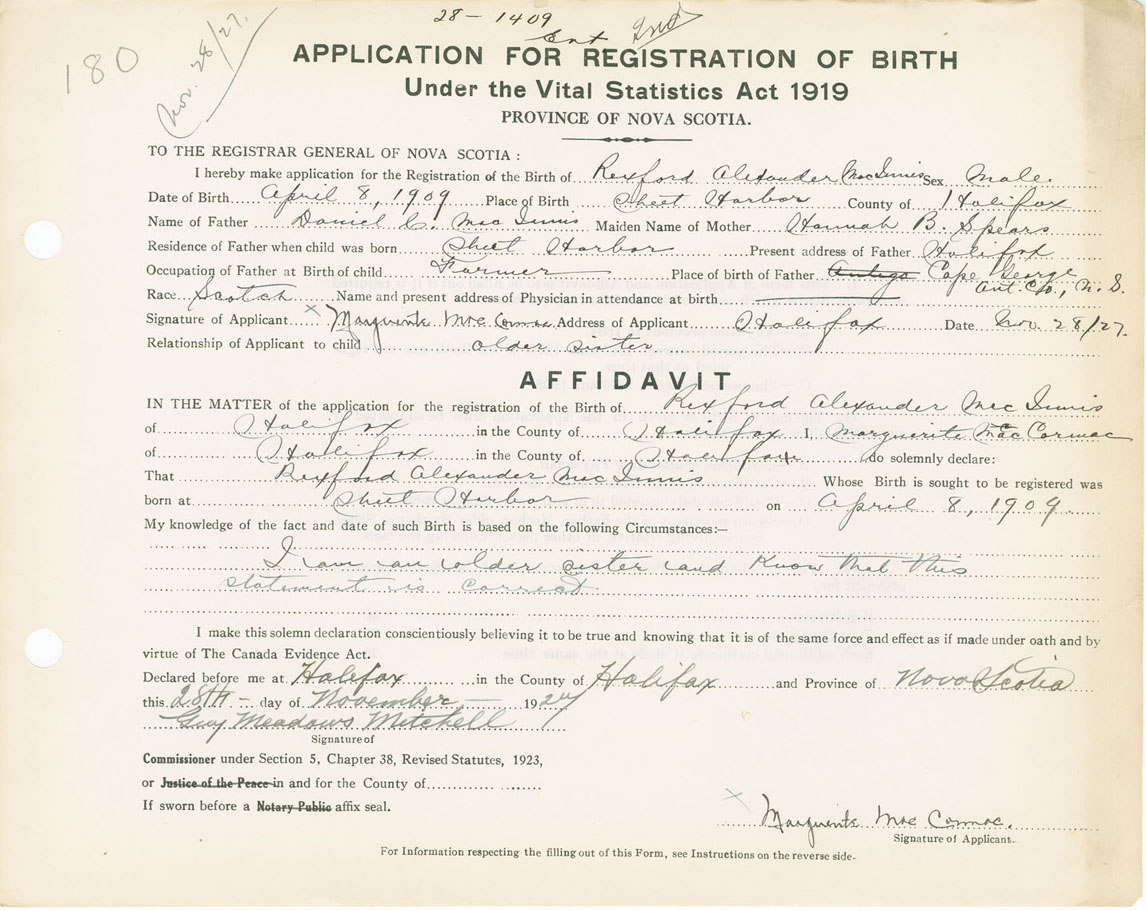 28 - 1409
180
Nov. 28/27.
Ent
APPLICATION FOR REGISTRATION OF BIRTH
Under the Vital Statistics Act 1919
PROVINCE OF NOVA SCOTIA.
TO THE REGISTRAR GENERAL OF NOVA SCOTIA :
I hereby make application for the Registration of the Birth of Rexford Alexander MacInnis Sex Male.
Date of Birth April 8, 1909 Place of Birth Sheet Harbor County of Halifax
Name of Father Daniel C. MacInnis Maiden Name of Mother Hannah B. Spears
Residence of Father when child was born Sheet Harbor Present address of Father Halifax
Occupation of Father at Birth of child Farmer Place of birth of Father Antigo Cape George
Ant. Co., N. S.
Race Scotch Name and present address of Physician in attendance at birth
Signature of Applicant x Marguerite MacCormac Address of Applicant Halifax Date Nov. 28/27.
Relationship of Applicant to child older sister
AFFIDAVIT
IN THE MATTER of the application for the registration of the Birth of Rexford Alexander MacInnis
of Halifax in the County of Halifax I, Marguerite MacCormac
of Halifax in the County of Halifax do solemnly declare:
That Rexford Alexander MacInnis Whose Birth is sought to be registered was
born at Sheet Harbor on April 8, 1909.
My knowledge of the fact and date of such Birth is based on the following Circumstances:—
I am an older sister and know that this
statement is correct.
I make this solemn declaration conscientiously believing it to be true and knowing that it is of the same force and effect as if made under oath and by
virtue of The Canada Evidence Act.
Declared before me at Halifax in the County of Halifax and Province of Nova Scotia
this 28th day of November 1927
Guy Meadows Mitchell
Signature of
Commissioner under Section 5, Chapter 38, Revised Statutes, 1923,
or Justice of the Peace in and for the County of
If sworn before a Notary Public affix seal.
x Marguerite MacCormac.
Signature of Applicant.
For Information respecting the filling out of this Form, see Instructions on the reverse side.